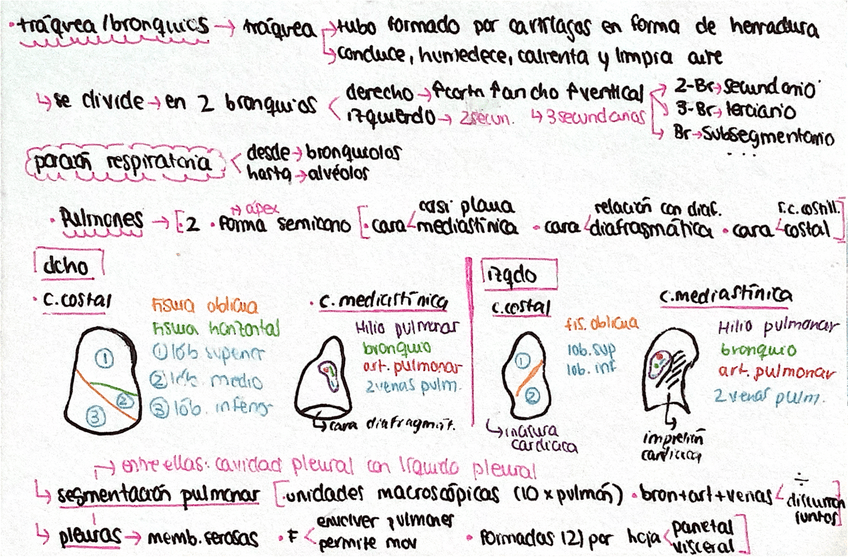 · tráquea/bronquios → tráquea → tubo formado por cartílagos en forma de herradura
↳ conduce, humedece, calienta y limpia aire
↳ se divide → en 2 bronquios < derecho → ↑corto ↑ancho ↑vertical → 2-Br → secundario
izquierdo → 2 secun. ↳ 3 secundarios 3-Br → terciario
↳ Br → subsegmentario
...
porción respiratoria < desde → bronquiolos
hasta → alvéolos
· Pulmones → [· 2 · forma semicono → ápex [· cara < casi plana mediastínica · cara < relación con diaf. diafragmática · cara < r.c. costill. costal]
dcho
izqdo
· c. costal
fisura oblicua
fisura horizontal
① lób. superior
② lób. medio
③ lób. inferior
① ② ③
· c. mediastínica
Hilio pulmonar
bronquio
art. pulmonar
2 venas pulm.
↳ cara diafragmát.
c. costal
fis. oblicua
lob. sup
lob. inf
① ②
↳ incisura cardíaca
c. mediastínica
Hilio pulmonar
bronquio
art. pulmonar
2 venas pulm.
impresión cardíaca
→ entre ellas: cavidad pleural con líquido pleural
↳ segmentación pulmonar [· unidades macroscópicas (10 x pulmón) · bron+art+venas < ÷ discurren juntos]
↳ pleuras → memb. serosas · F < envolver pulmones · formadas (2) por hoja < parietal
permite mov visceral]